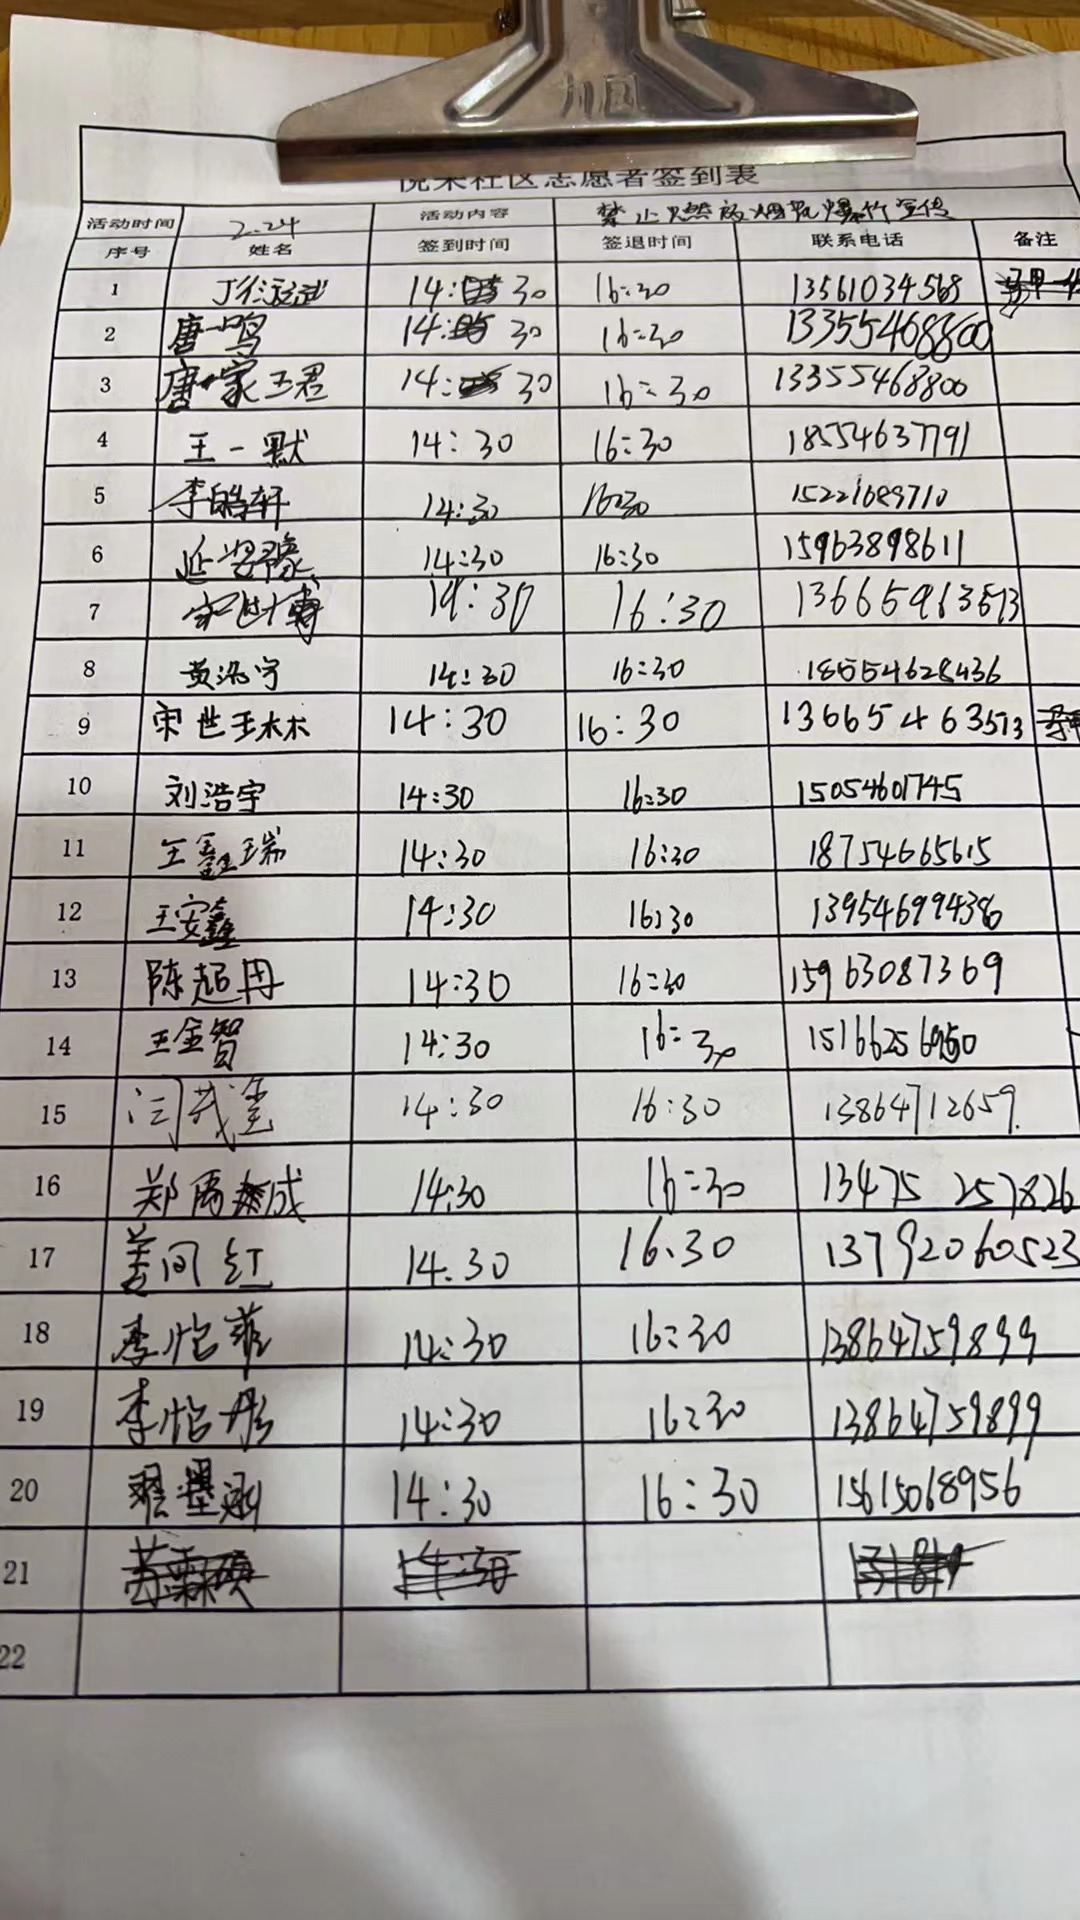 旭
悦来社区志愿者签到表
活动时间 2.24 活动内容 禁止燃放烟花爆竹宣传
序号 姓名 签到时间 签退时间 联系电话 备注
1 14:30 16:30 13561034568
2 唐一鸣 14:30 16:30 13355468800
3 唐一家王君 14:30 16:30 13355468800
4 王一默 14:30 16:30 18554637791
5 李皓轩 14:30 16:30 15221689710
6 延安豫 14:30 16:30 15963898611
7 宋世博 14:30 16:30
8 黄浩宇 14:30 16:30 18554628436
9 宋世王木木 14:30 16:30 13665463573
10 刘浩宇 14:30 16:30 15054601745
11 王鑫瑞 14:30 16:30 18754665615
12 王安鑫 14:30 16:30 13954699438
13 陈超冉 14:30 16:30 15963087369
14 王金智 14:30 16:30
15 闫茂堂 14:30 16:30 13864712659
16 郑禹成 14:30 16:30 13475 257826
17 姜同红 14.30 16.30 13792060523
18 李怡菲 14:30 16:30 13864759899
19 李怡彤 14:30 16:30 13864759899
20 翟墨涵 14:30 16:30 15615068956
21
22